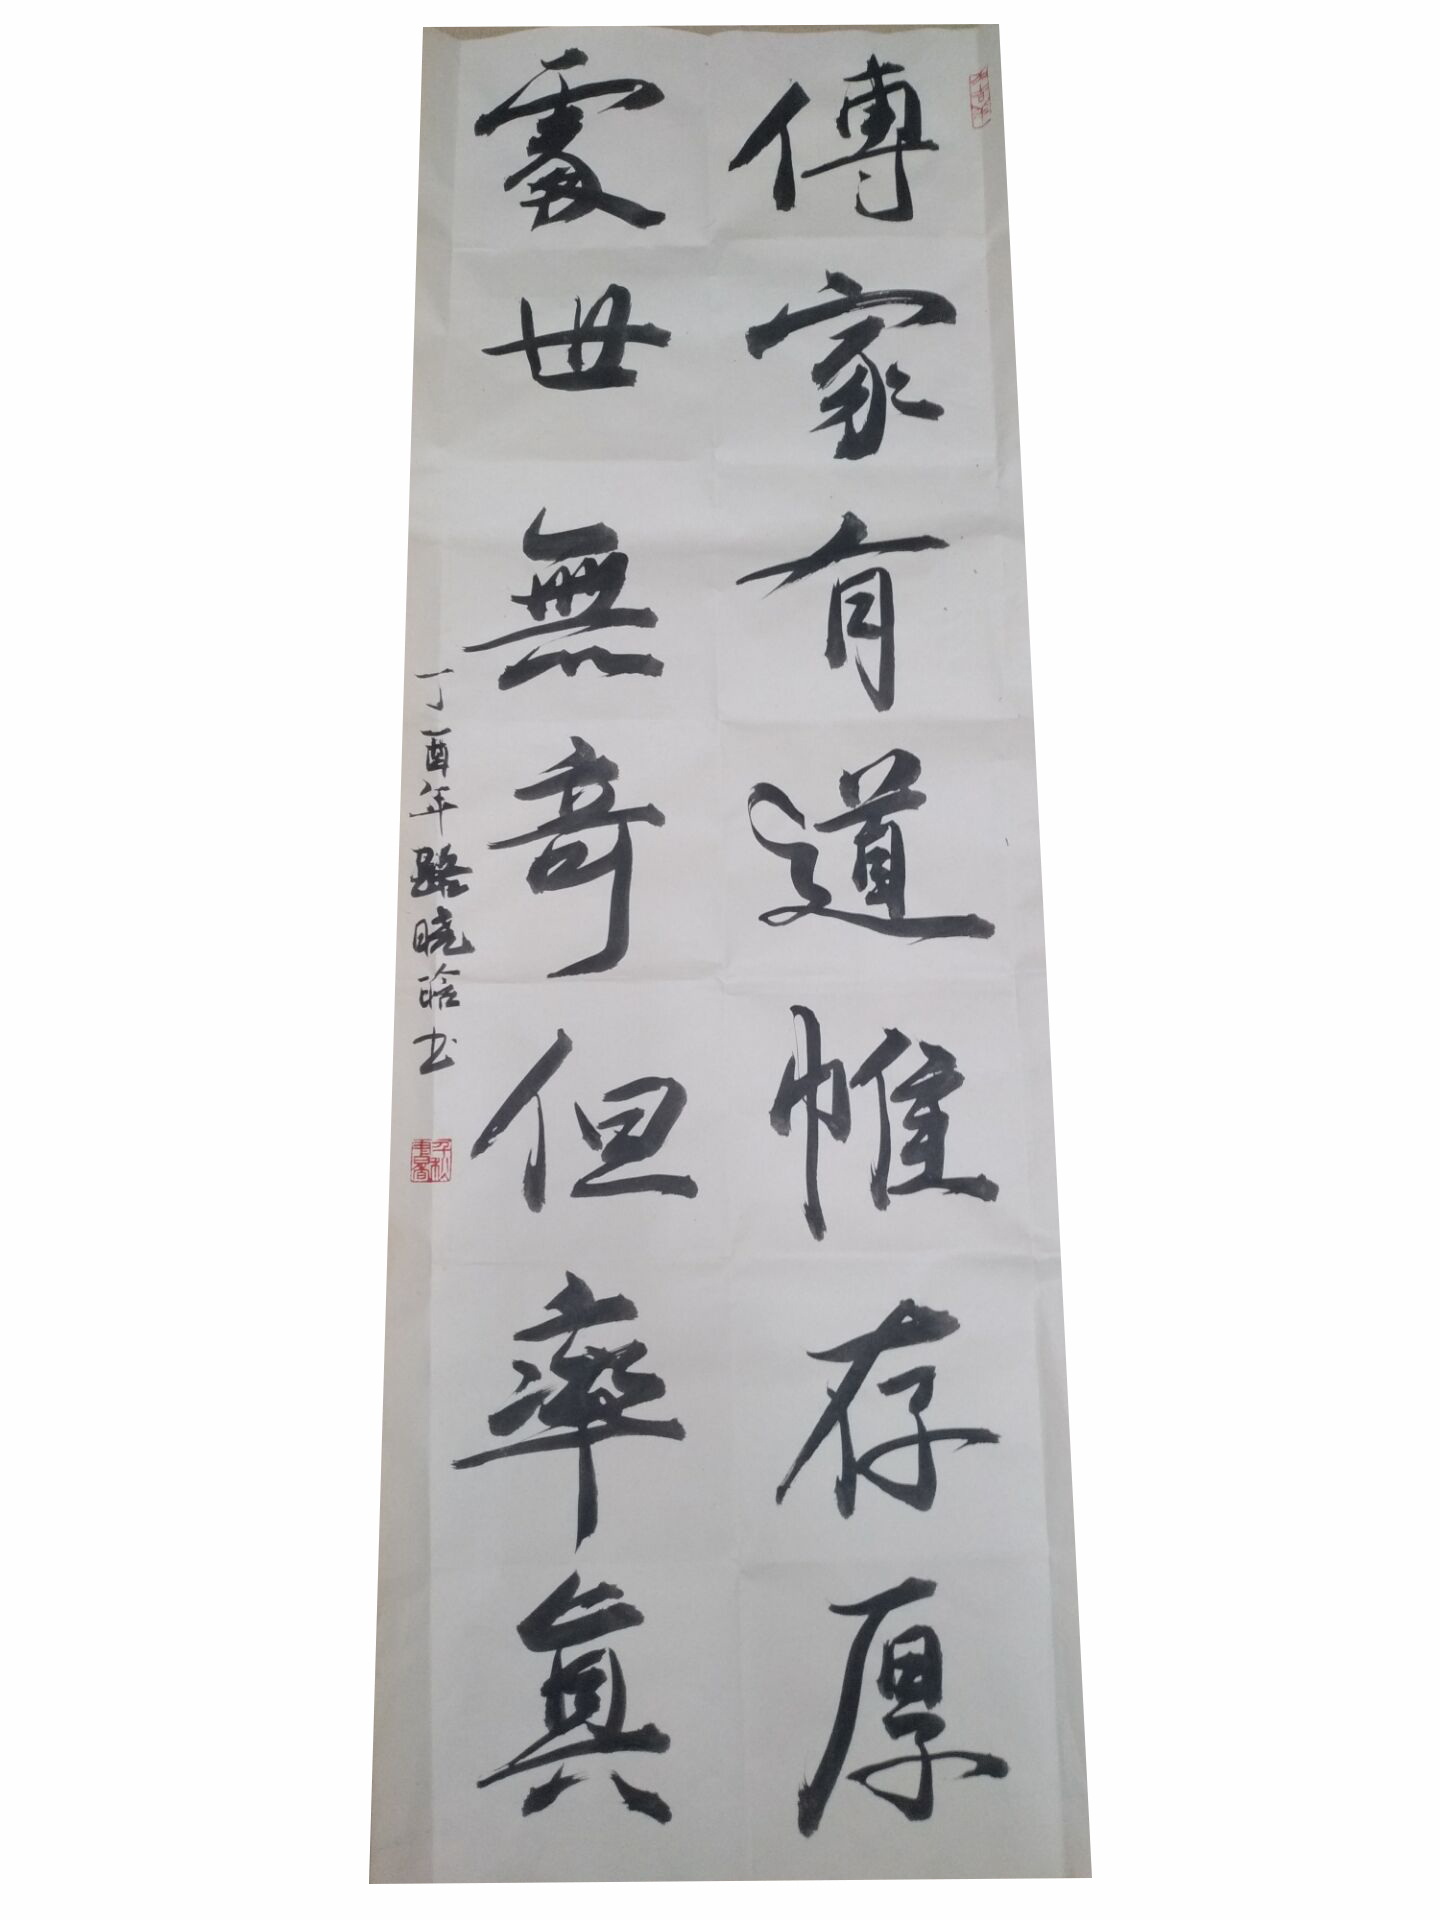 傳家有道惟存厚
處世無奇但率真
丁酉年路晓晗书